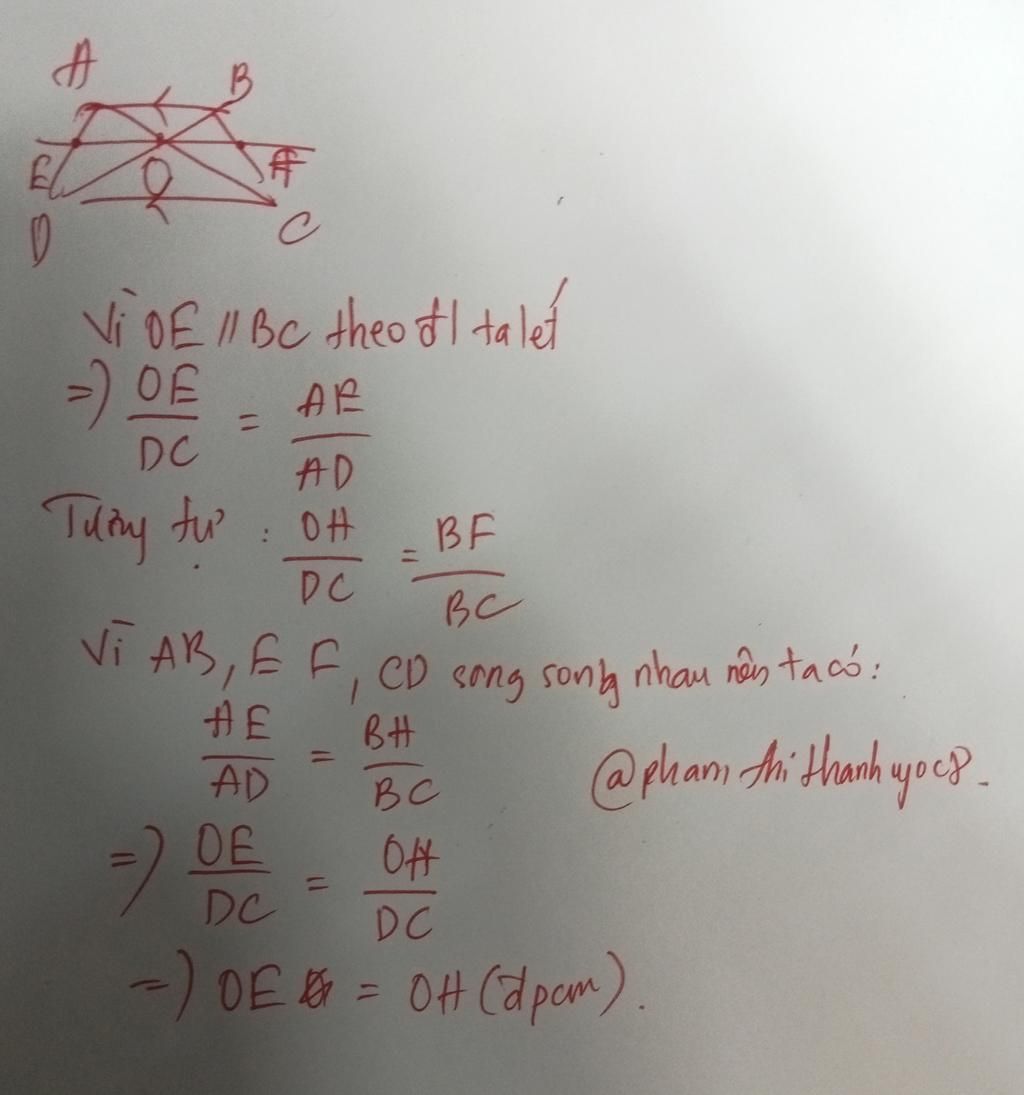 A
B
E
O
H
D
C
Vì OE // BC theo đl ta lét
=) OE/DC = AE/AD
Tương tự : OH/DC = BF/BC
Vì AB, E F, CD song song nhau nên ta có:
AE/AD = BH/BC
@phamthithanhyoc8.
=) OE/DC = OH/DC
=) OE = OH (đpcm).